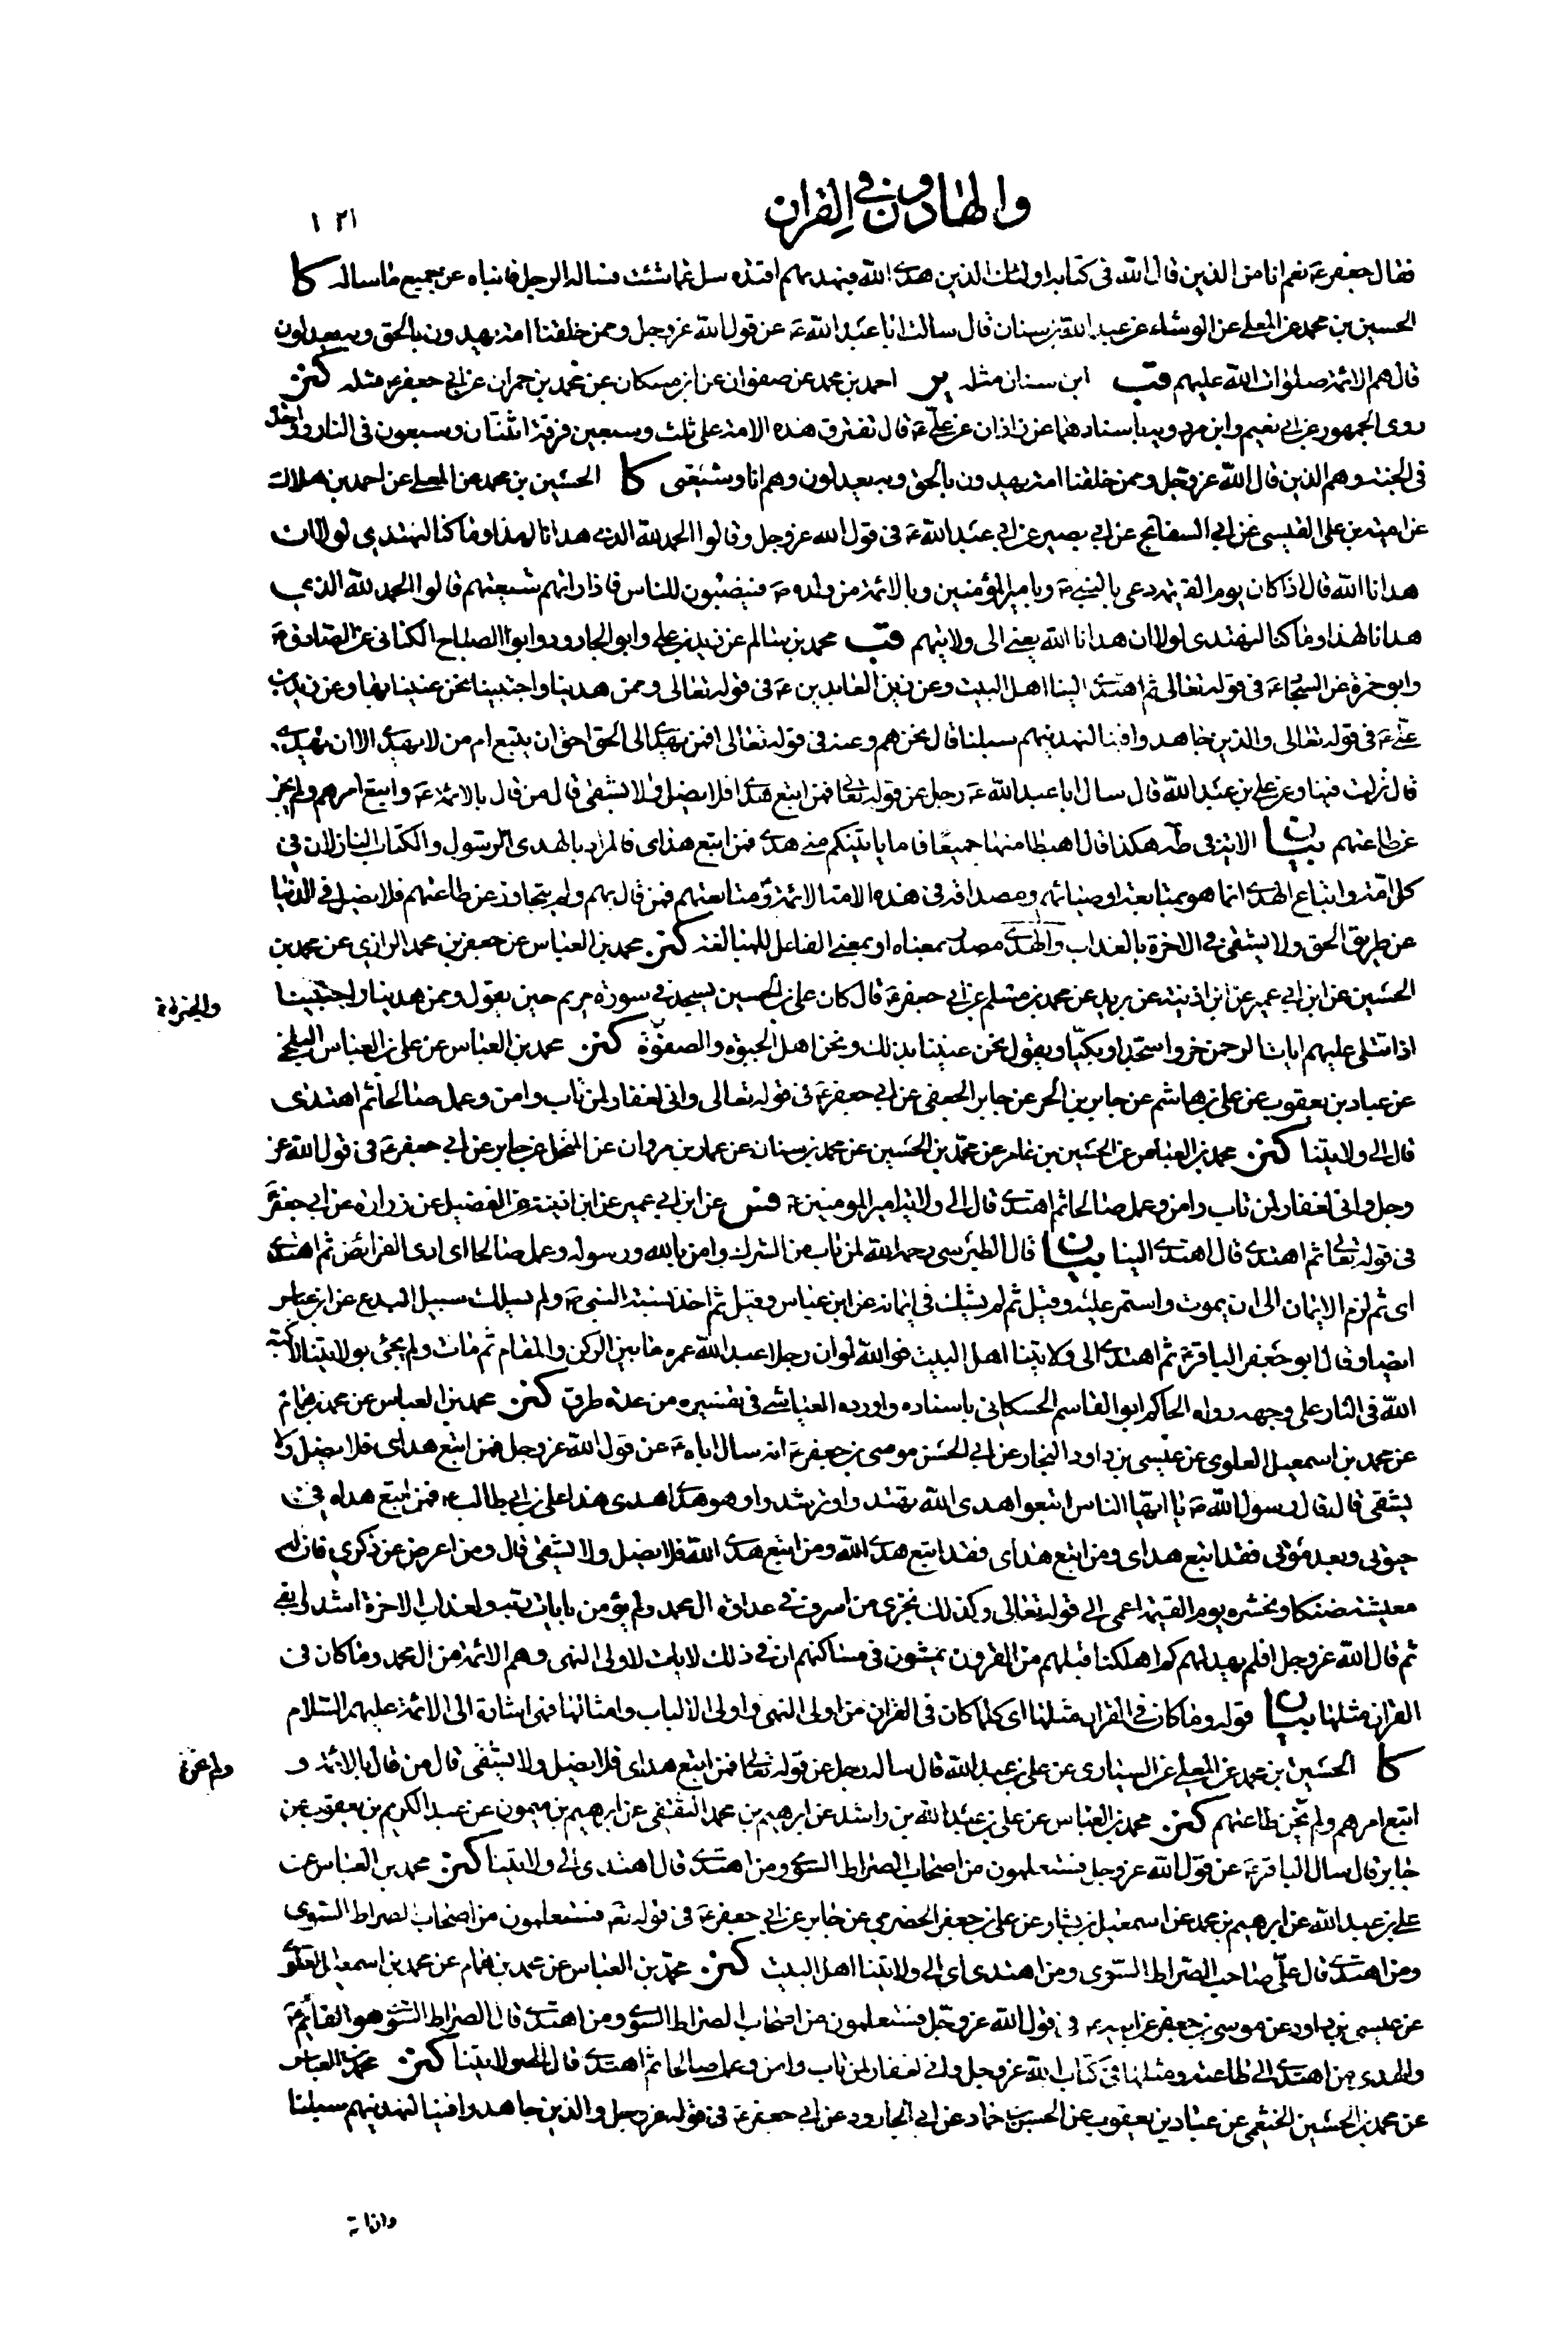 والهادون في القران
١٢١
فقال جعفر ع نعم انا من الذين قال الله في كتابه اولئك الذين هدى الله فبهديهم اقتده سل عما شئت فساله الرجل فانباه عن جميع ما ساله كا
الحسين بن محمد عن المعلى عن الوشاء عن عبد الله بن سنان قال سالت ابا عبد الله ع عن قول الله عز وجل وممن خلقنا امة يهدون بالحق وبه يعدلون
قال هم الائمة صلوات الله عليهم قب ابن سنان مثله ير احمد بن محمد عن صفوان عن ابن مسكان عن محمد بن حمران عن ابي جعفر ع مثله كنز
روى الجمهور عن ابي نعيم وابن مردويه باسنادهما عن زاذان عن علي ع قال تفترق هذه الامة على ثلث وسبعين فرقة اثنتان وسبعون في النار وواحدة
في الجنة وهم الذين قال الله عز وجل وممن خلقنا امة يهدون بالحق وبه يعدلون وهم انا وشيعتي كا الحسين بن محمد عن المعلى عن احمد بن هلال
عن امية بن علي القيسي عن ابي السفاتج عن ابي بصير عن ابي عبد الله ع في قول الله عز وجل وقالوا الحمد لله الذي هدانا لهذا وما كنا لنهتدي لولا ان
هدانا الله قال اذا كان يوم القيمة دعي بالنبي ص وبامير المؤمنين وبالائمة من ولده ع فينصبون للناس فاذا راتهم شيعتهم قالوا الحمد لله الذي
هدانا لهذا وما كنا لنهتدي لولا ان هدانا الله يعني الى ولايتهم قب محمد بن سالم عن زيد بن علي وابو الجارود وابو الصباح الكناني عن الصادق ع
وابو حمزة عن السجاد ع في قوله تعالى ثم اهتدى الينا اهل البيت وعن زين العابدين ع في قوله تعالى وممن هدينا واجتبينا نحن عنينا بها وعن زيد بن
علي ع في قوله تعالى والذين جاهدوا فينا لنهدينهم سبلنا قال نحن هم وعنه في قوله تعالى افمن يهدي الى الحق احق ان يتبع ام من لا يهدي الا ان يهدى
قال نزلت فينا وعن علي بن عبد الله قال سال ابا عبد الله ع رجل عن قوله تعالى فمن اتبع هداي فلا يضل ولا يشقى قال من قال بالائمة ع واتبع امرهم ولم يجز
عن طاعتهم بيان الاية في طه هكذا قال اهبطا منها جميعا فاما ياتينكم مني هدى فمن اتبع هداي فالمراد بالهدى الرسول والكتاب النازلان في
كل امة واتباع الهدى انما هو بمتابعة اوصيائهم ومصداقه في هذه الامة الائمة ع ومتابعتهم فمن قال بهم ولم يتجاوز عن طاعتهم فلا يضل في الدنيا
عن طريق الحق ولا يشقى في الاخرة بالعذاب والهدى مصدر بمعناه او بمعنى الفاعل للمبالغة كنز محمد بن العباس عن جعفر بن محمد الرازي عن محمد بن
الحسين عن ابن ابي عمير عن ابن اذينة عن بريد عن محمد بن مسلم عن ابي جعفر ع قال كان علي بن الحسين يسجد في سورة مريم حين يقول وممن هدينا واجتبينا
والخيرة
اذا تتلى عليهم ايات الرحمن خروا سجدا وبكيا ويقول نحن عنينا بذلك ونحن اهل الجبوة والصفوة كنز محمد بن العباس عن علي بن العباس البلخي
عن عباد بن يعقوب عن علي بن هاشم عن جابر بن الحر عن جابر الجعفي عن ابي جعفر ع في قوله تعالى واني لغفار لمن تاب وامن وعمل صالحا ثم اهتدى
قال الى ولايتنا كنز محمد بن العباس عن الحسين بن عامر عن محمد بن الحسين عن محمد بن سنان عن عمار بن مروان عن المنخل عن جابر عن ابي جعفر ع في قول الله عز
وجل واني لغفار لمن تاب وامن وعمل صالحا ثم اهتدى قال الى ولاية امير المومنين ع فس عن ابن ابي عمير عن ابن اذينة عن الفضيل عن زرارة عن ابي جعفر ع
في قوله تعالى ثم اهتدى قال اهتدى الينا بيان قال الطبرسي رحمه الله لمن تاب من الشرك وامن بالله ورسوله وعمل صالحا اي ادى الفرائض ثم اهتدى
اي ثم لزم الايمان الى ان يموت واستمر عليه وقيل ثم لم يشك في ايمانه عن ابن عباس وقيل ثم اخذ بسنة النبي ص ولم يسلك سبيل البدع عن ابن عباس
ايضا وقال ابو جعفر الباقر ع ثم اهتدى الى ولايتنا اهل البيت فو الله لو ان رجلا عبد الله عمره ما بين الركن والمقام ثم مات ولم يجئ بولايتنا لاكبه
الله في النار على وجهه رواه الحاكم ابو القاسم الحسكاني باسناده واورده العياشي في تفسيره من عدة طرق كنز محمد بن العباس عن محمد بن همام
عن محمد بن اسمعيل العلوي عن عيسى بن داود النجار عن ابي الحسن موسى بن جعفر ع انه سال اباه ع عن قول الله عز وجل فمن اتبع هداي فلا يضل ولا
يشقى قال قال رسول الله ص يا ايها الناس اتبعوا هدى الله تهتدوا وترشدوا وهو هداي هدى هذا علي بن ابي طالب ع فمن اتبع هداه في
حيوتي وبعد موتي فقد اتبع هداي ومن اتبع هداي فقد اتبع هدى الله ومن اتبع هدى الله فلا يضل ولا يشقى قال ومن اعرض عن ذكري فان له
معيشة ضنكا ونحشره يوم القيمة اعمى الى قوله تعالى وكذلك نجزي من اسرف في عداوة ال محمد ولم يؤمن بايات ربه ولعذاب الاخرة اشد وابقى
ثم قال الله عز وجل افلم يهد لهم كم اهلكنا قبلهم من القرون يمشون في مساكنهم ان في ذلك لايات لاولي النهى وهم الائمة من ال محمد وما كان في
القران مثلها بيان قوله وما كان في القران مثلها اي كلما كان في القران من اولي النهى واولي الالباب وامثالها فهي اشارة الى الائمة عليهم السلام
كا الحسين بن محمد عن المعلى عن السياري عن علي بن عبد الله قال ساله رجل عن قوله تعالى فمن اتبع هداي فلا يضل ولا يشقى قال من قال بالائمة و
اتبع امرهم ولم يجز طاعتهم كنز محمد بن العباس عن علي بن عبد الله بن راشد عن ابرهيم بن محمد الثقفي عن ابرهيم بن ميمون عن عبد الكريم بن يعقوب عن
جابر قال سال الباقر ع عن قول الله عز وجل فستعلمون من اصحاب الصراط السوي ومن اهتدى قال اهتدى الى ولايتنا كنز محمد بن العباس عن
علي بن عبد الله عن ابرهيم بن محمد عن اسمعيل بن بشار عن علي بن جعفر الحضرمي عن جابر عن ابي جعفر ع في قوله تع فستعلمون من اصحاب الصراط السوي
ومن اهتدى قال علي صاحب الصراط السوي ومن اهتدى اي الى ولايتنا اهل البيت كنز محمد بن العباس عن محمد بن همام عن محمد بن اسمعيل العلوي
عن عيسى بن داود عن موسى بن جعفر عن ابيه ع في قول الله عز وجل فستعلمون من اصحاب الصراط السوي ومن اهتدى قال الصراط السوي هو القائم ع
والهدى من اهتدى الى طاعته ومثلها في كتاب الله عز وجل واني لغفار لمن تاب وامن وعمل صالحا ثم اهتدى قال الى ولايتنا كنز محمد بن العباس
عن محمد بن الحسين الخثعمي عن عباد بن يعقوب عن الحسن بن حماد عن ابي الجارود عن ابي جعفر ع في قوله عز وجل والذين جاهدوا فينا لنهدينهم سبلنا